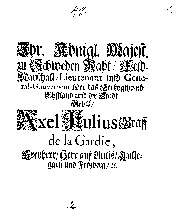 Ihr. Königl. Majest.
zu Schweden Raht / Feld-
Marschall / Lieutenant und Gene-
ral-Gouverneur über das Hertzogthumb
Ehstland und die Stadt
Reval /
Axel Julius Graff
de la Gardie,
Freyherr / Herr auff
und